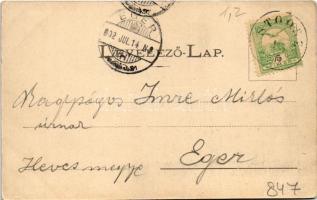 1,2
EGER
902 JUL. 14
LEVELEZŐ-LAP.
Nagyságos Imre Miklós
úrnak
Eger
Heves megye
847